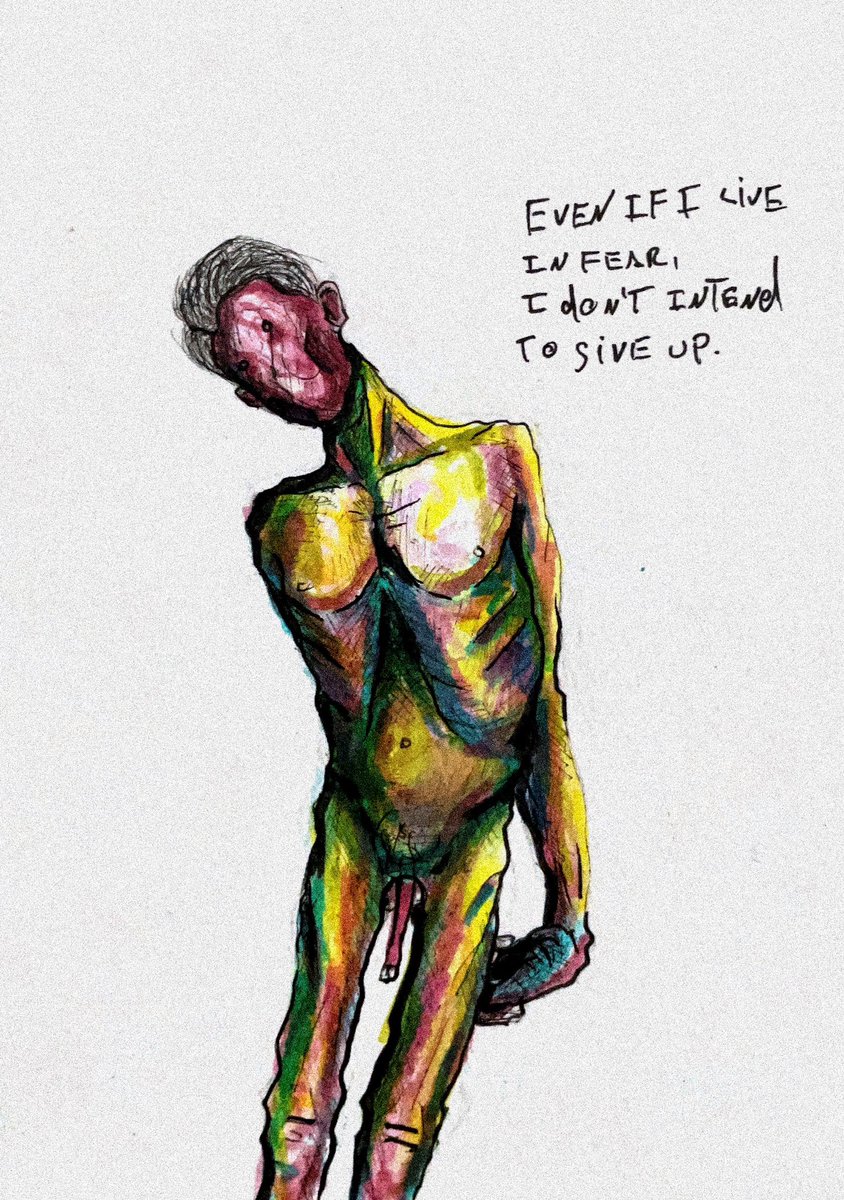 EVEN IF I LiVE
IN FEAR,
I doN'T INTENd
TO GiVE UP.